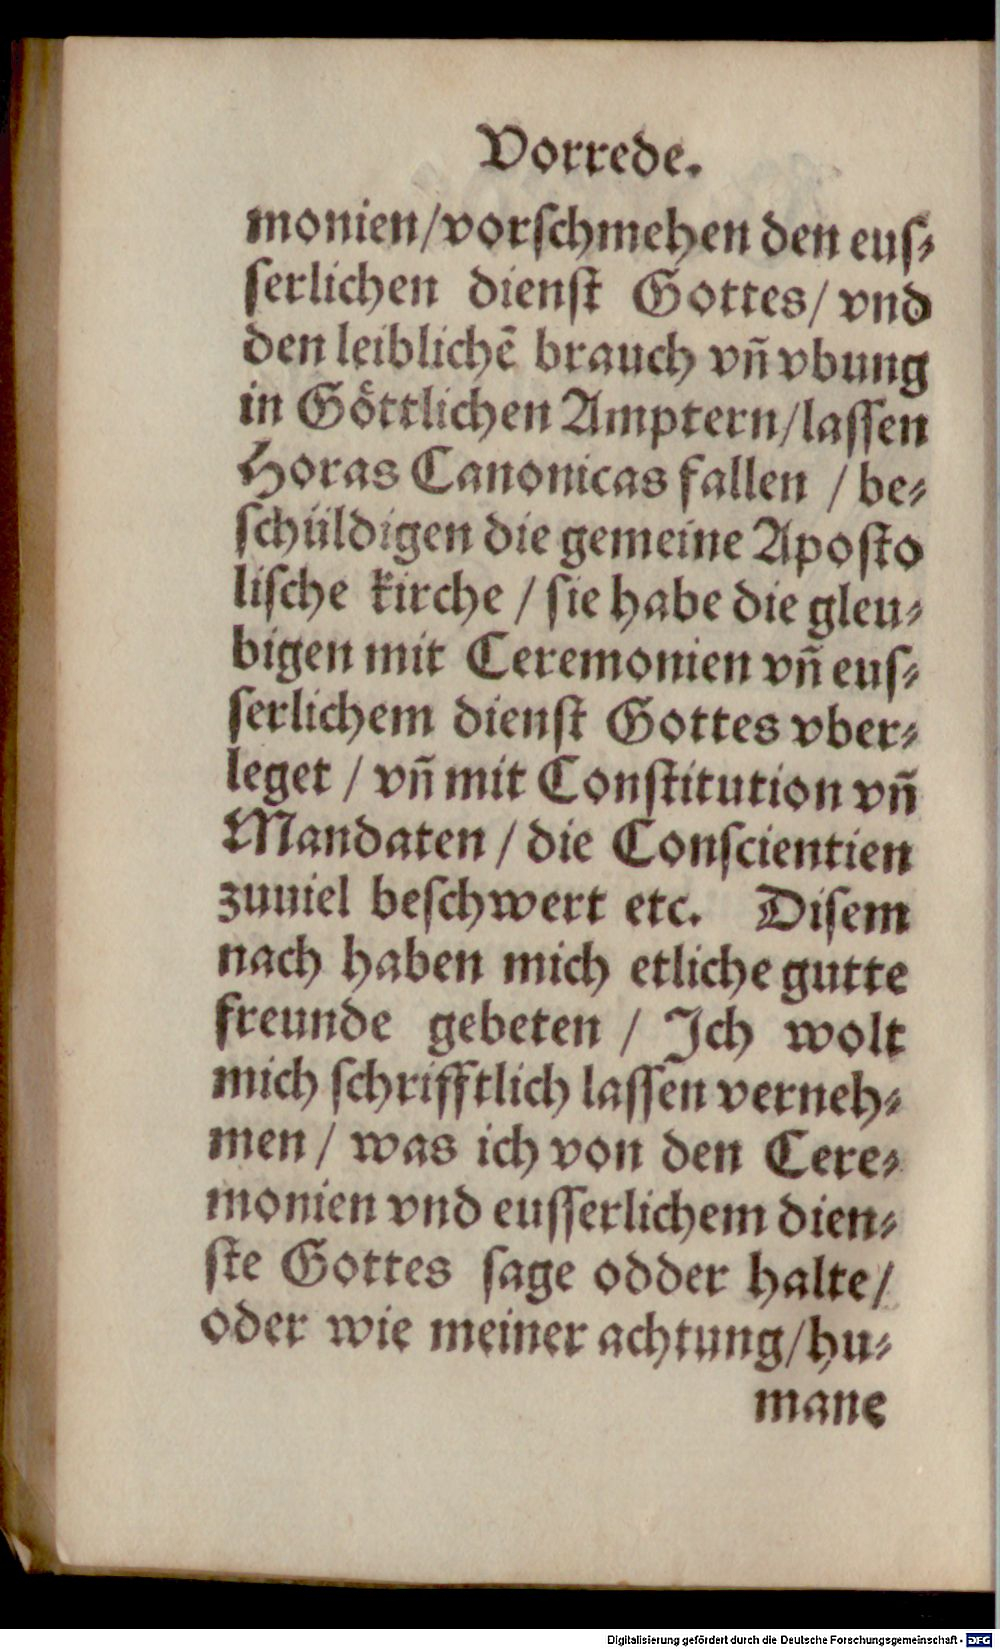 Vorrede.
monien/vorſchmehen den euſ⸗
ſerlichen dienſt Gottes/ vnd
den leiblichẽ brauch vñ vbung
in Goͤttlichen Amptern/laſſen
Horas Canonicas fallen / be⸗
ſchüldigen die gemeine Apoſto
liſche kirche / ſie habe die gleu⸗
bigen mit Ceremonien vñ euſ⸗
ſerlichem dienſt Gottes vber⸗
leget / vñ mit Conſtitution vñ
Mandaten / die Conſcientien
zuuiel beſchwert etc. Diſem
nach haben mich etliche gutte
freunde gebeten / Ich wolt
mich ſchrifftlich laſſen verneh⸗
men / was ich von den Cere⸗
monien vnd euſſerlichem dien⸗
ſte Gottes ſage odder halte/
oder wie meiner achtung/hu⸗
mane
Digitalisierung gefördert durch die Deutsche Forschungsgemeinschaft - DFG